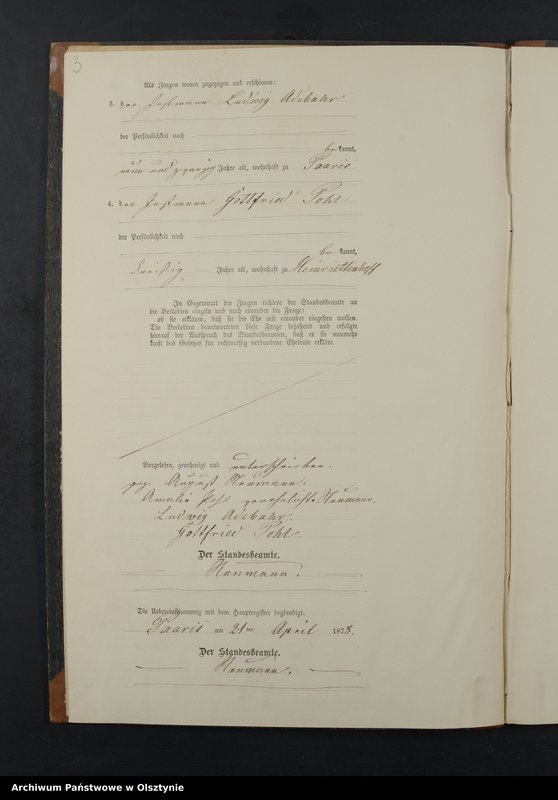 3
Als Zeugen waren zugezogen und erschienen:
3. der Instmann Ludwig Adebahr
der Persönlichkeit nach
be kannt,
neun und zwanzig Jahre alt, wohnhaft zu Paaris
4. der Instmann Gottfried Pohl
der Persönlichkeit nach
be kannt,
dreißig Jahre alt, wohnhaft zu Heinriettenhoff
In Gegenwart der Zeugen richtete der Standesbeamte an
die Verlobten einzeln und nach einander die Frage:
ob sie erklären, daß sie die Ehe mit einander eingehen wollen.
Die Verlobten beantworteten diese Frage bejahend und erfolgte
hierauf der Ausspruch des Standesbeamten, daß er sie nunmehr
kraft des Gesetzes für rechtmäßig verbundene Eheleute erkläre.
Vorgelesen, genehmigt und unterschrieben.
gez. August Neumann.
Amalie Pohl verehelichte Neumann.
Ludwig Adebahr.
Gottfried Pohl.
Der Standesbeamte.
Neumann.
Die Uebereinstimmung mit dem Hauptregister beglaubigt.
Paaris am 21ten April 1878.
Der Standesbeamte.
Neumann.
Archiwum Państwowe w Olsztynie